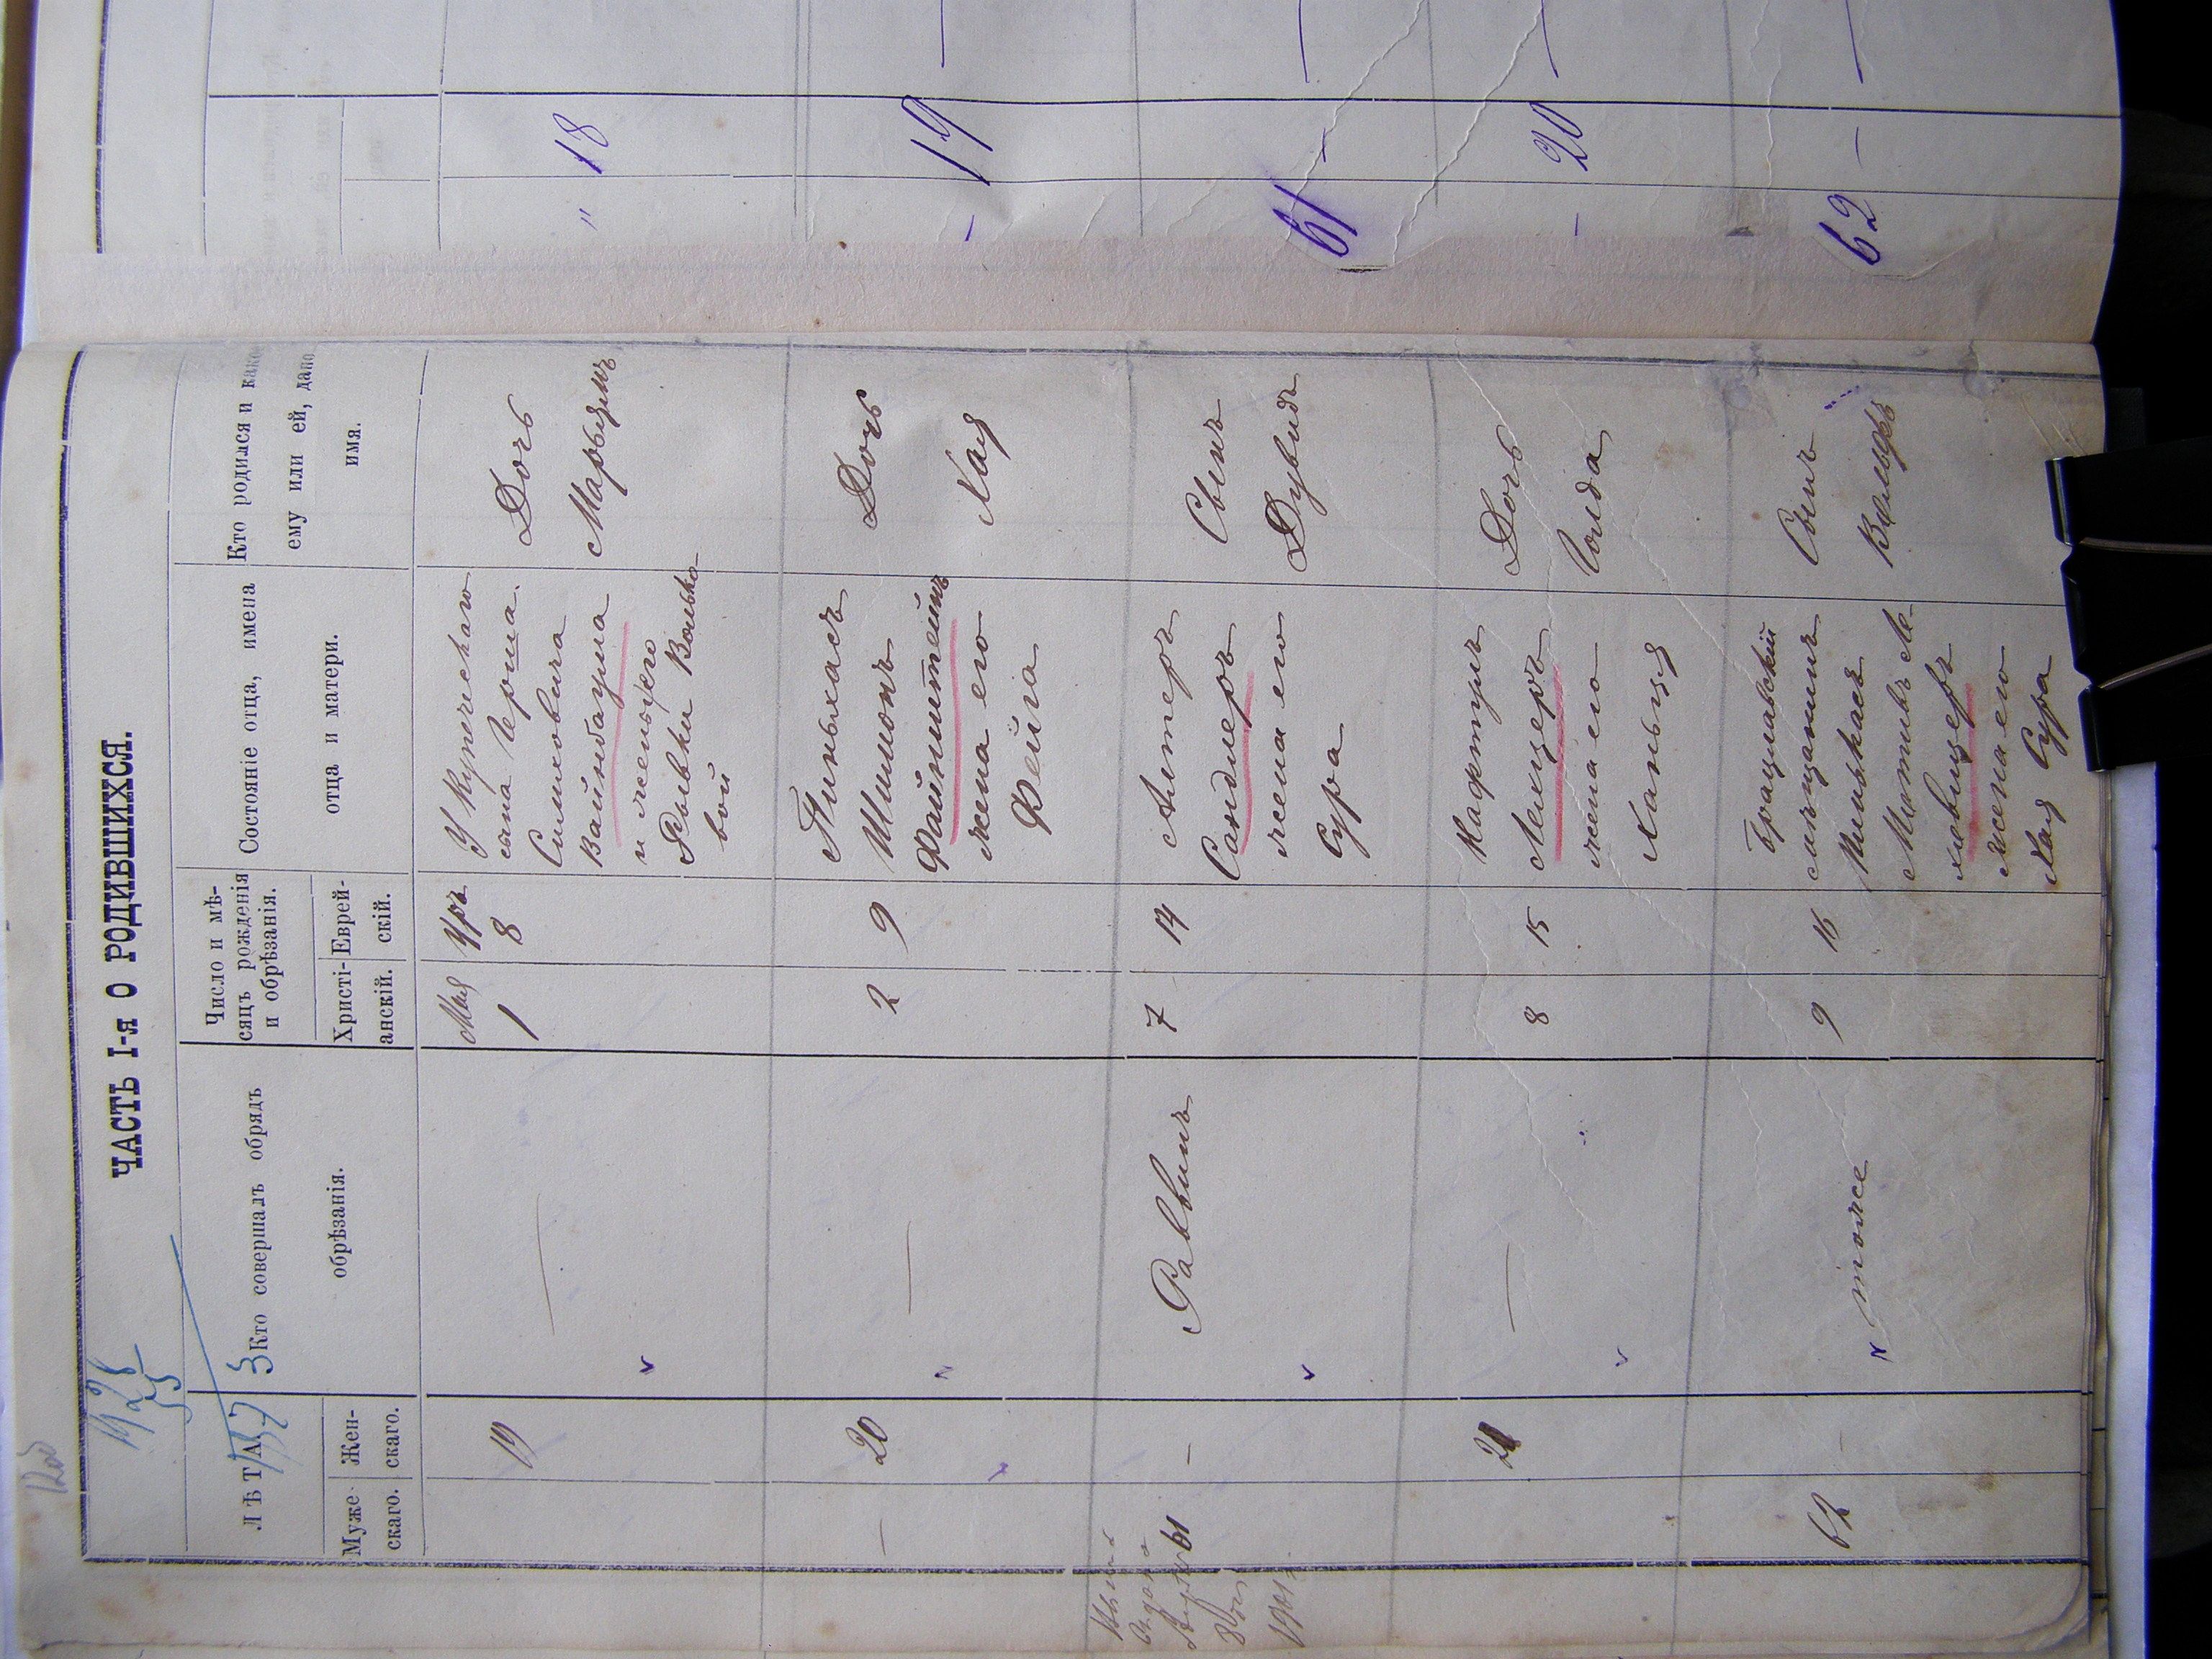 ЧАСТЬ I-я О РОДИВШИХСЯ.
ЛѢТА
Муже-
скаго.
Жен-
скаго.
Кто совершалъ обрядъ
обрѣзанія.
Число и мѣ-
сяцъ рожденія
и обрѣзанія.
Христі-
анскій.
Еврей-
скій.
Состояніе отца, имена
отца и матери.
Кто родился и како
ему или ей, дано
имя.
19
—
Мая
1
Іръ
8
У купеческаго
сына Герша
Симховича
Вайнбаума
и жены его
Ривки Волько-
вой
Дочь
Марьямъ
—
20
—
2
9
Пиньхасъ
Шимонъ
Файнштейнъ
жена его
Фейга
Дочь
Хая
61
—
Раввинъ
7
14
Алтеръ
Сандлеръ
жена его
Сура
Сынъ
Дувидъ
1901 г.
21
—
8
15
Кафтулъ
Лемцеръ
жена его
Ханьця
Дочь
Голда
62
—
тоже
9
16
Брацлавскій
мѣщанинъ
Пинькасъ
жена его
Хая Сура
Сынъ
Вольфъ
" 18
- 19 —
61 - —
- 20 —
62 — —